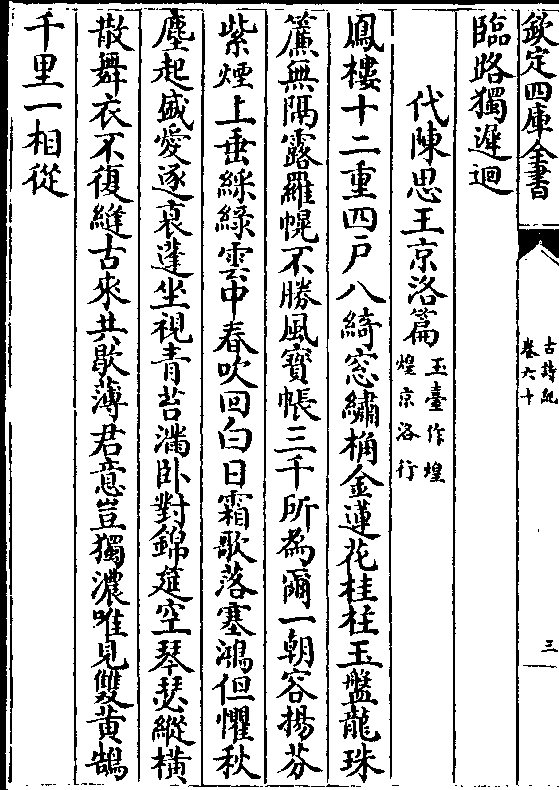 欽定四庫全書
古詩紀
卷六十
三
臨路獨遲迴
代陳思王京洛篇
玉臺作煌
煌京洛行
鳳樓十二重四戶八綺窓繡桷金蓮花桂柱玉盤龍珠
簾無隔露羅幌不勝風寳帳三千所為爾一朝容揚芬
紫煙上垂綵綠雲中春吹回白日霜歌落塞鴻但懼秋
塵起盛愛逐衰蓬坐視青苔滿臥對錦筵空琴瑟縱橫
散舞衣不復縫古來共歇薄君意豈獨濃唯見雙黃鵠
千里一相從